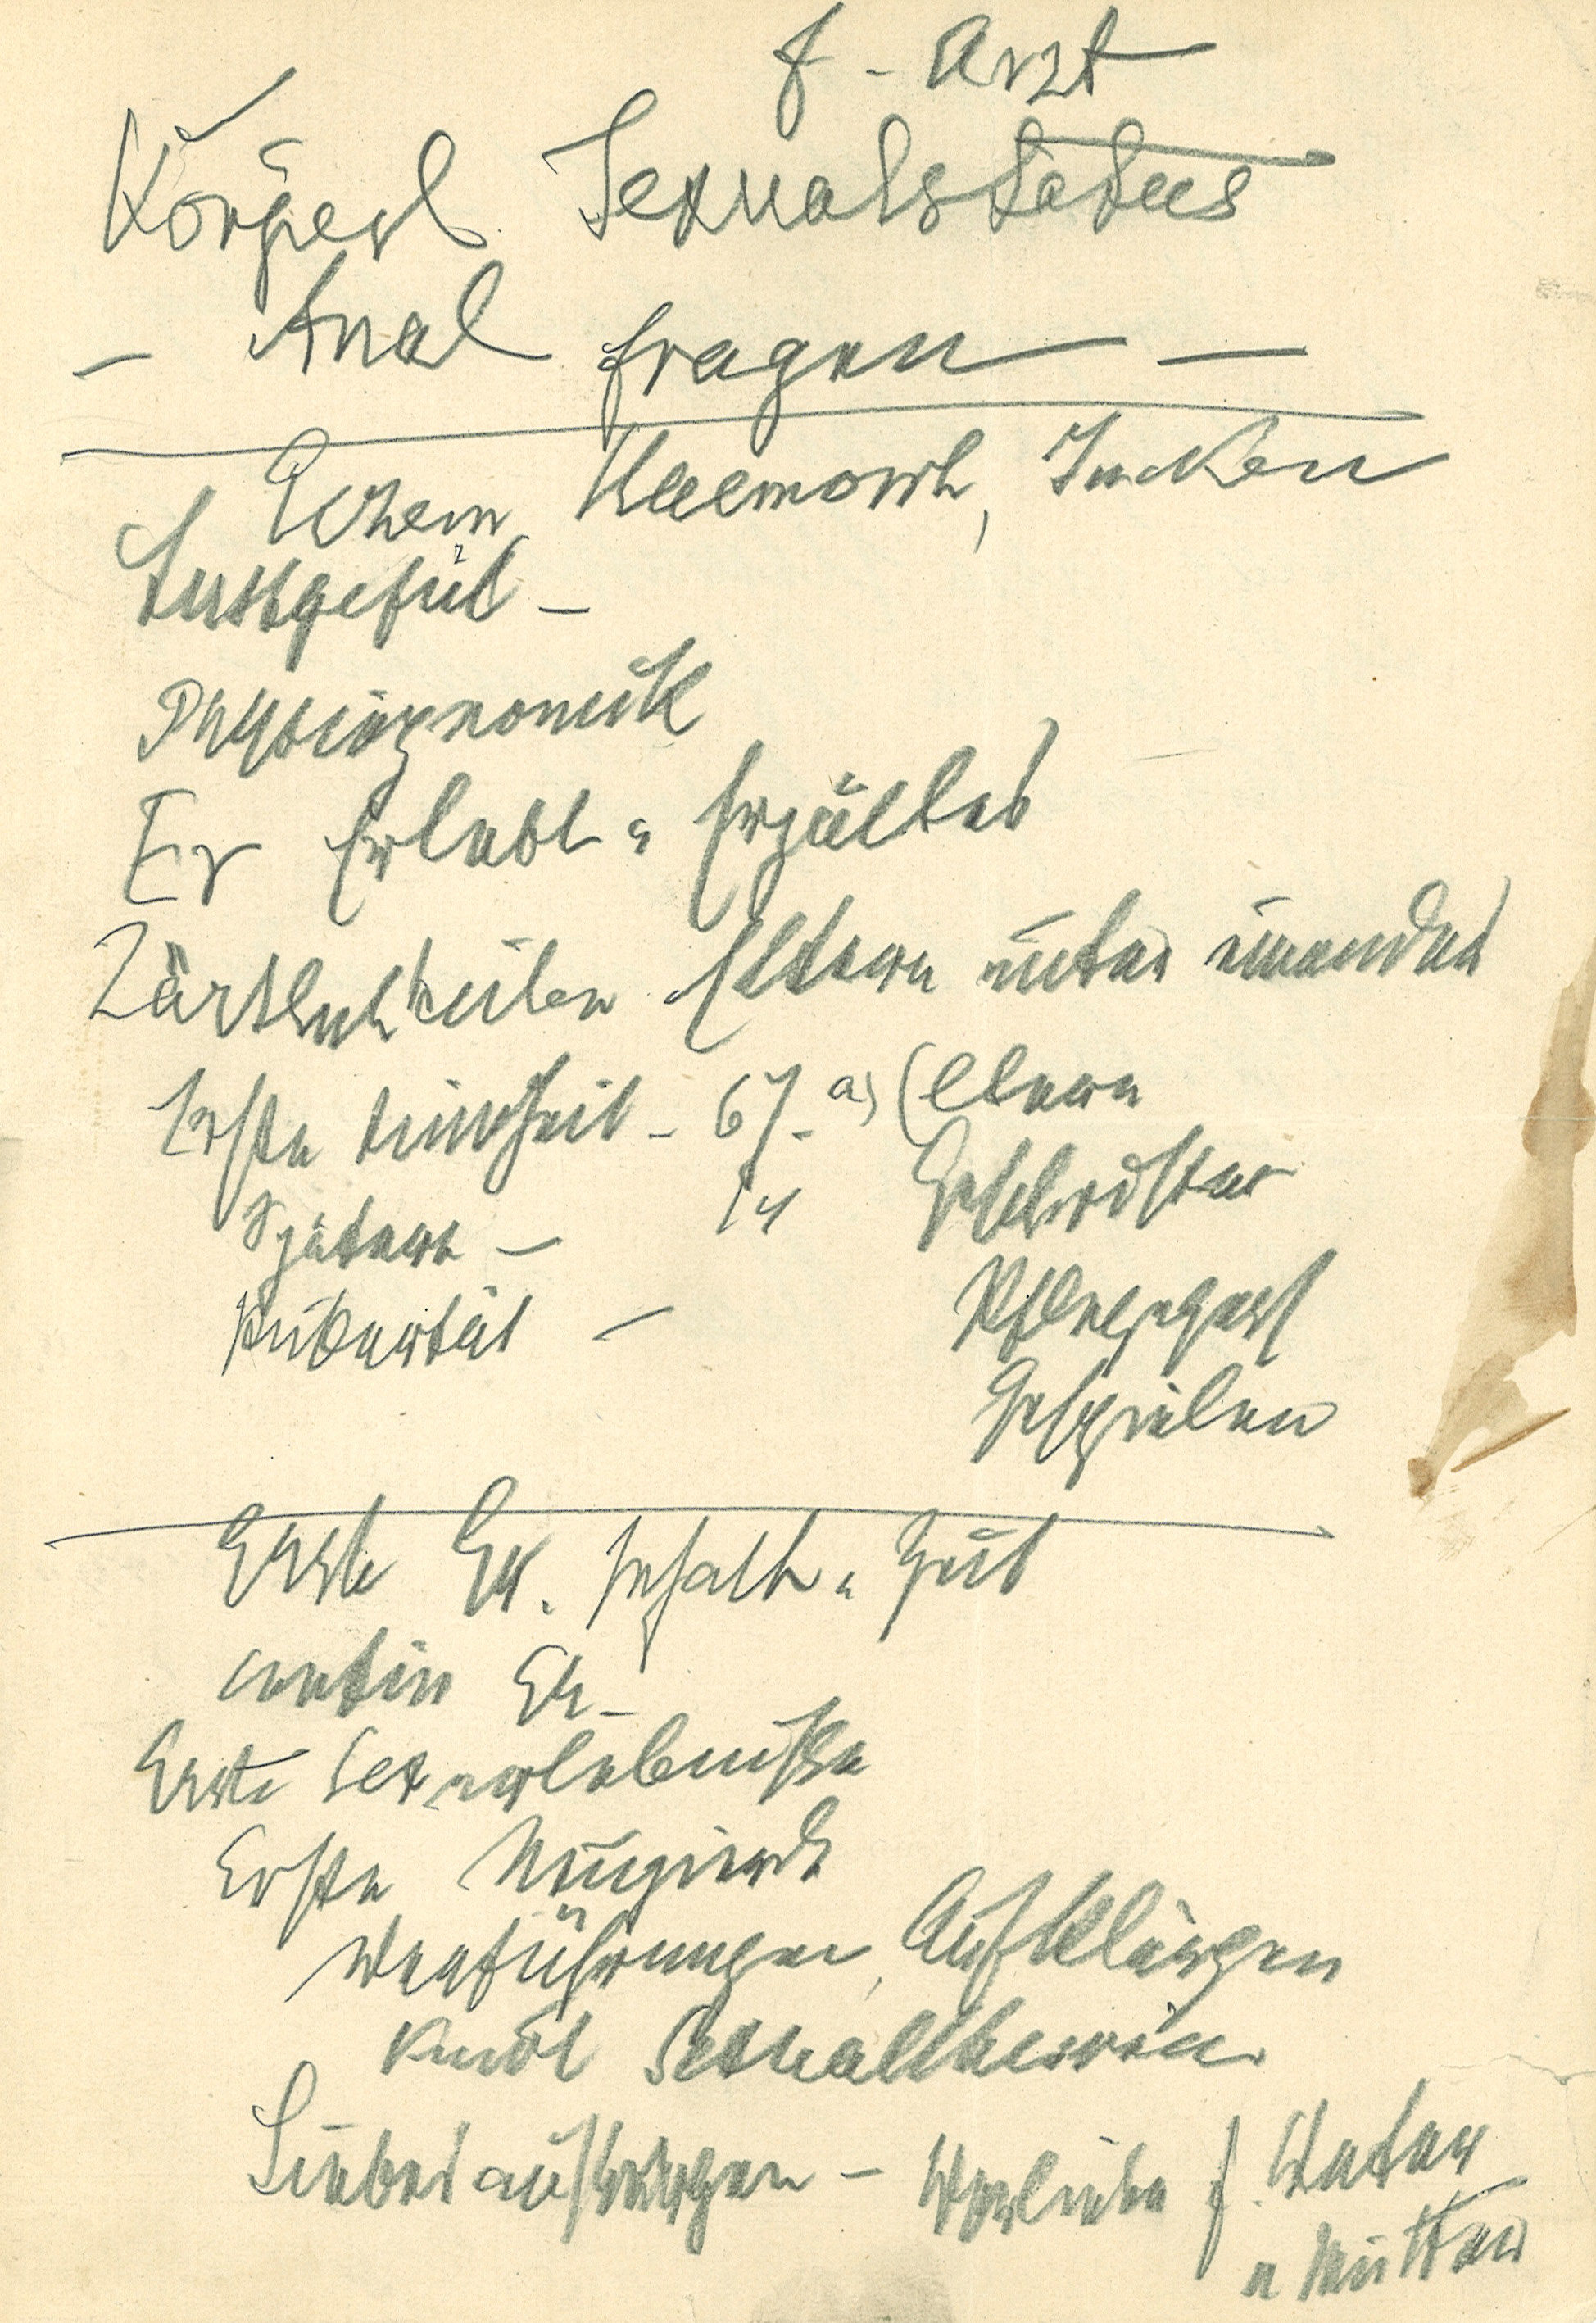 f - Arzt
Körperl Sexualstatus
- Anal fragen -
Ekzem, Haemorrh, Jucken
Lustgefül -
Physiognomik
Er Erlebt u Erzältes
Zärtlichkeiten Eltern unter einander
Erste Kindheit - 6 J. - a) Eltern
Späterh - 14 Geschwister
Pubertät - Pflegepers
Gespielen
Erste Er. Inhalt u Zeit
Er -
Erste Sexerlebnisse
Erste Neugierde
Verführungen, Aufklärgen
Kindl Sexualtheorien
Liebesäusserungen - Vorliebe f. Vater
u Mutter